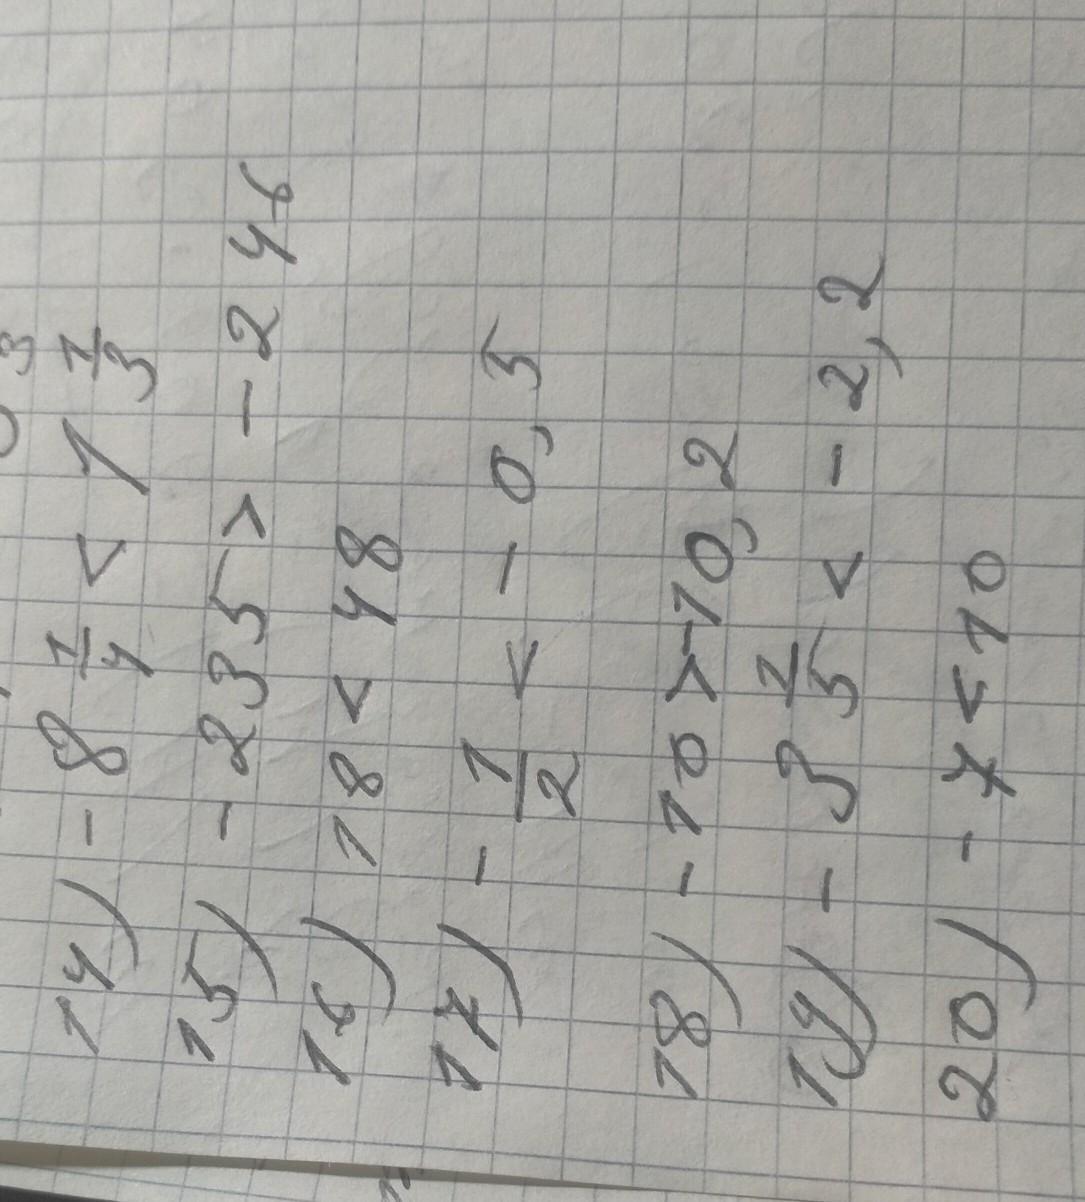 14) - 8 1/4 < 1 1/3
15) - 235 > - 246
16) 18 < 48
17) - 1/2 < - 0,5
18) - 10 > -10,2
19) - 3 1/5 < - 2,2
20) - 7 < 10